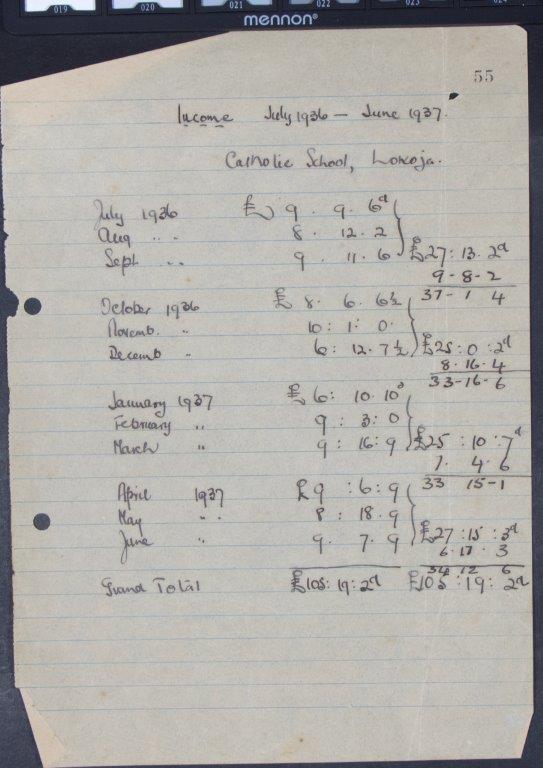 019 020 021 022 023 024
mennon®
55
Income July 1936 — June 1937.
Catholic School, Lokoja.
July 1936 £ 9 . 9 . 6d
Aug " 8 . 12 . 2
Sept " 9 . 11 . 6 £27 : 13 . 2d
9 - 8 - 2
37 - 1 4
October 1936 £ 8 . 6 . 6½
Novemb. " 10 : 1 : 0.
Decemb " 6 : 12 . 7½ £25 : 0 : 2d
8 . 16 . 4
33 - 16 - 6
January 1937 £ 6 : 10 . 10d
February " 9 : 3 : 0
March " 9 : 16 : 9 £25 : 10 : 7d
7 . 4 . 6
33 15 - 1
April 1937 £ 9 : 6 : 9
May " 8 : 18 . 9
June " 9 . 7 . 9 £27 : 15 : 3d
6 . 17 . 3
34 12 6
Grand Total £105 : 19 : 2d £105 : 19 : 2d